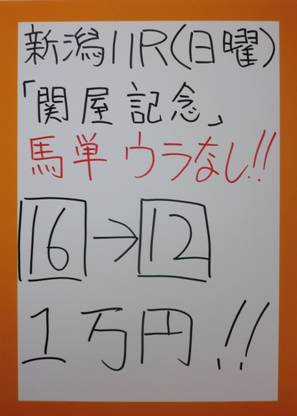 新潟11R(日曜)
「関屋記念」
馬単ウラなし!!
16→12
1万円!!